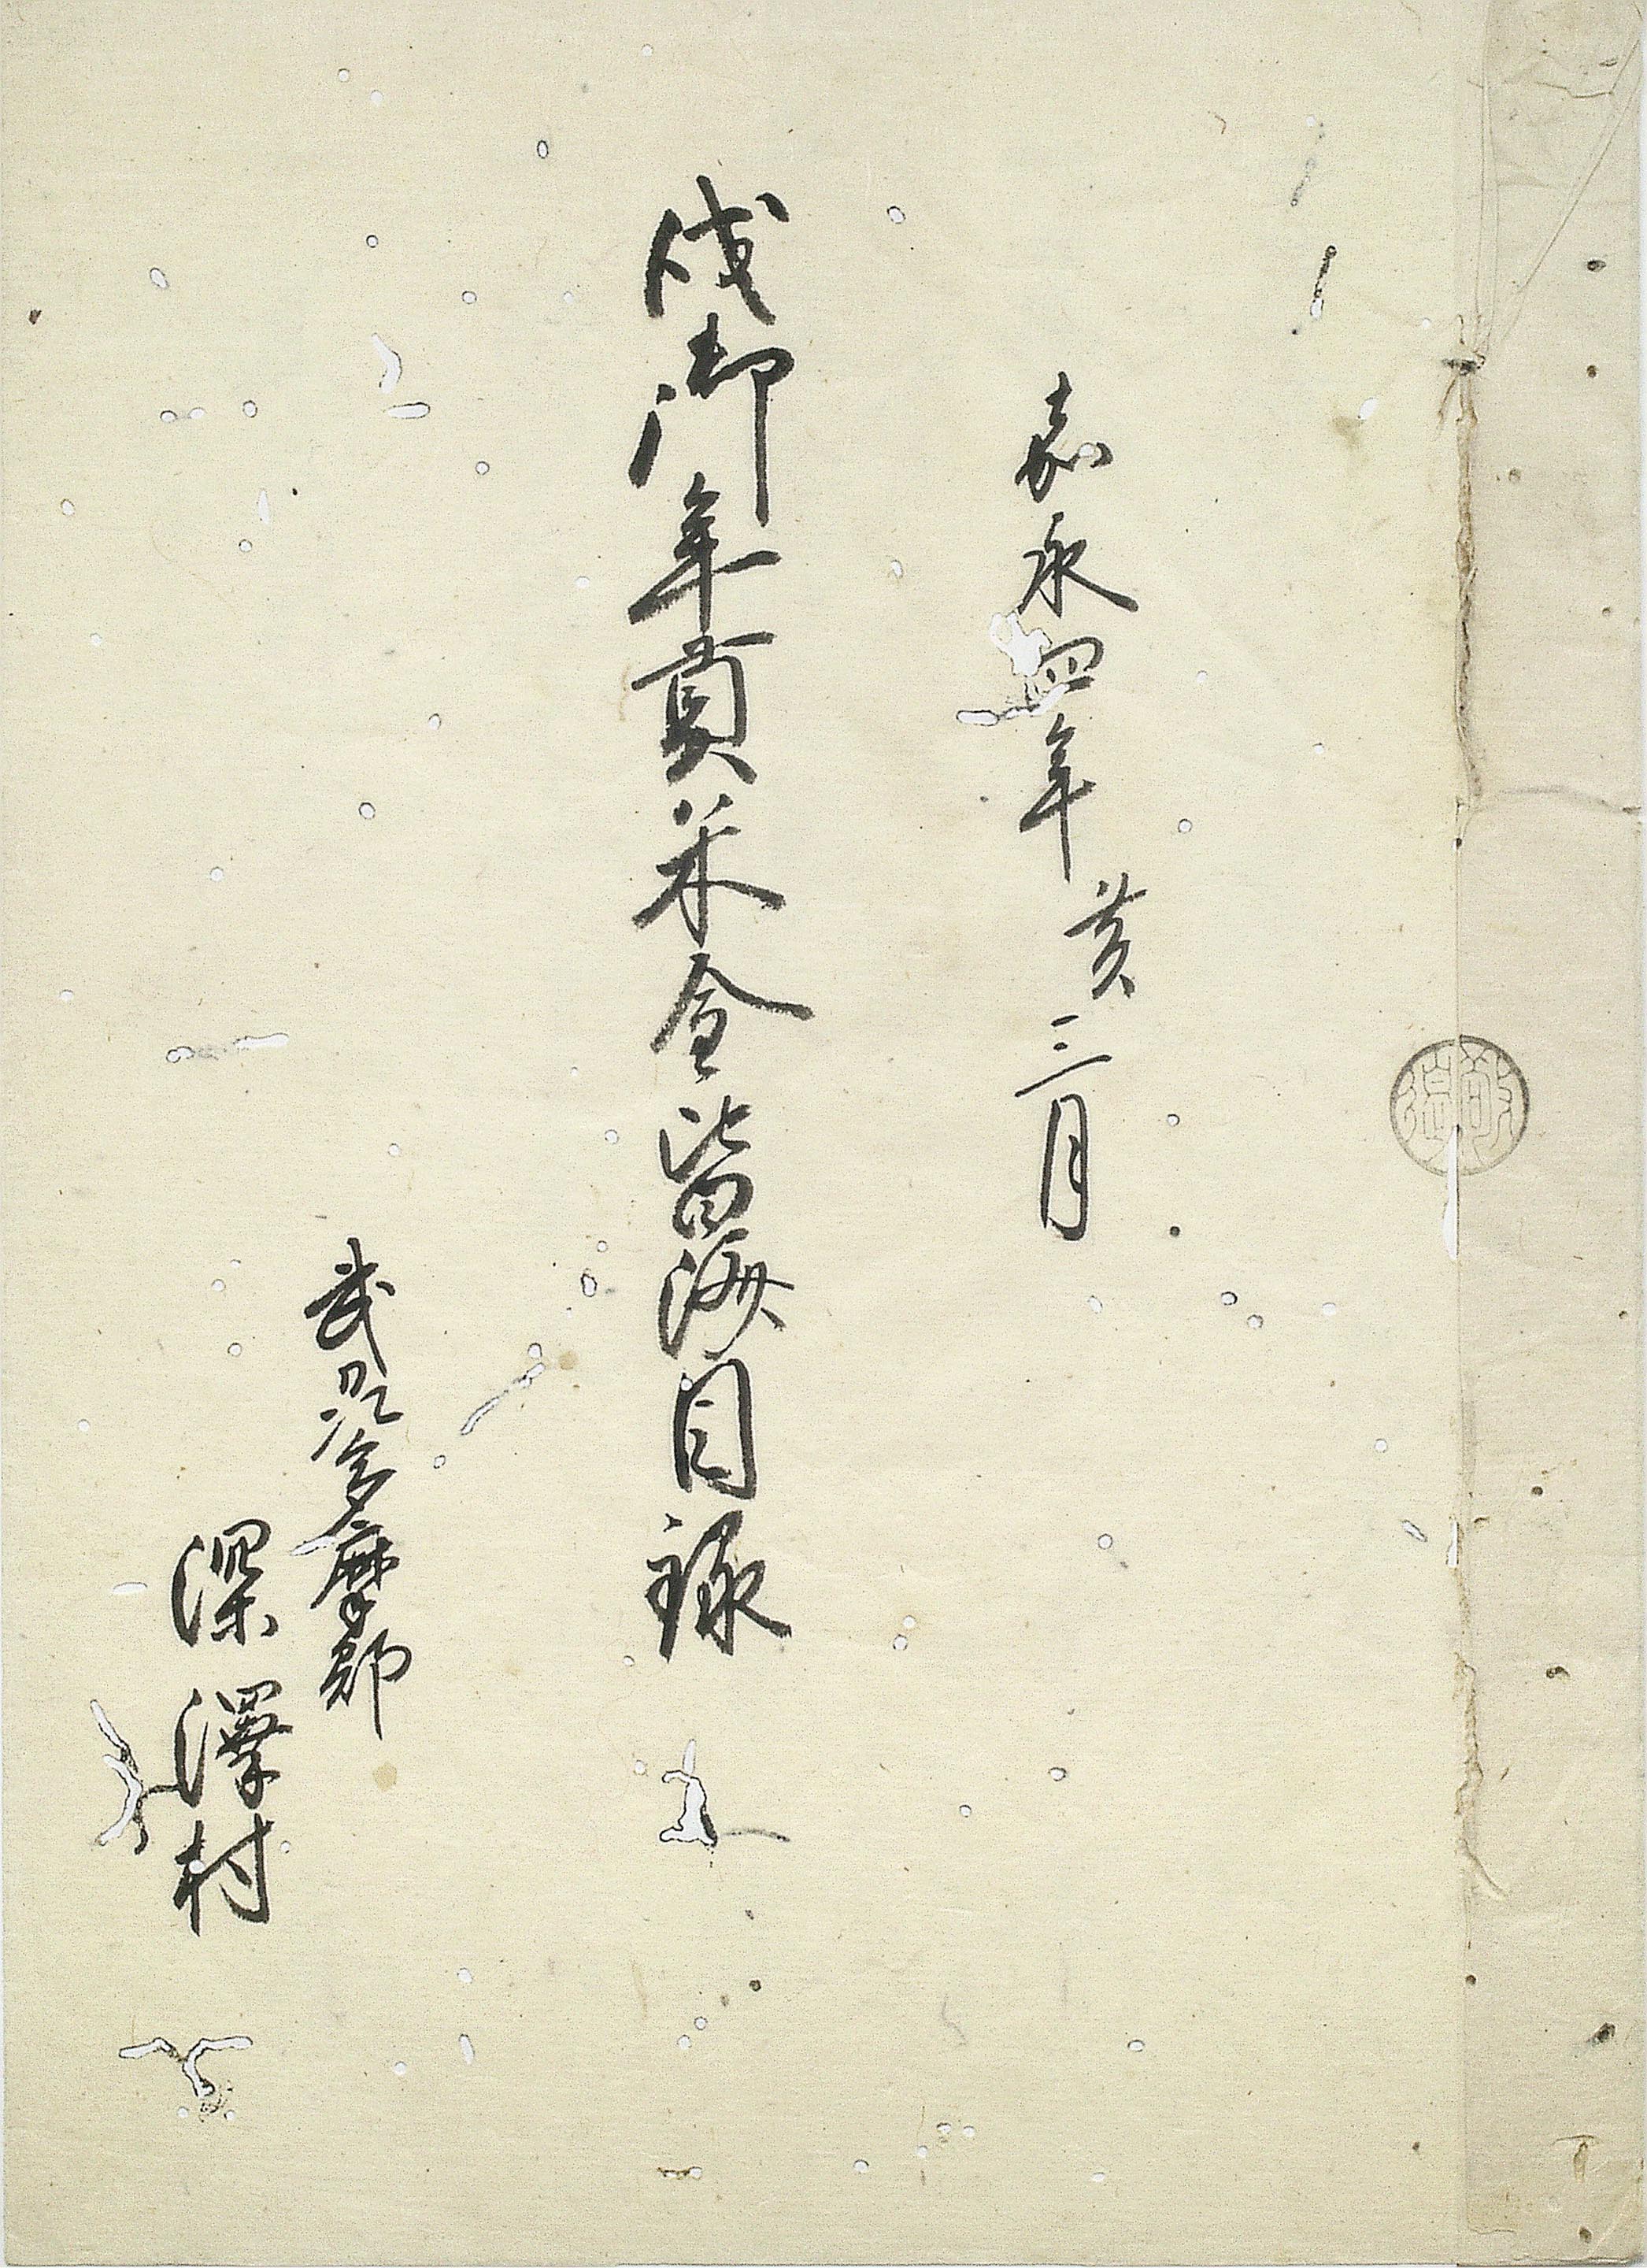 嘉永四年亥三月
戌御年貢米金皆済目録
武州多摩郡
深澤村